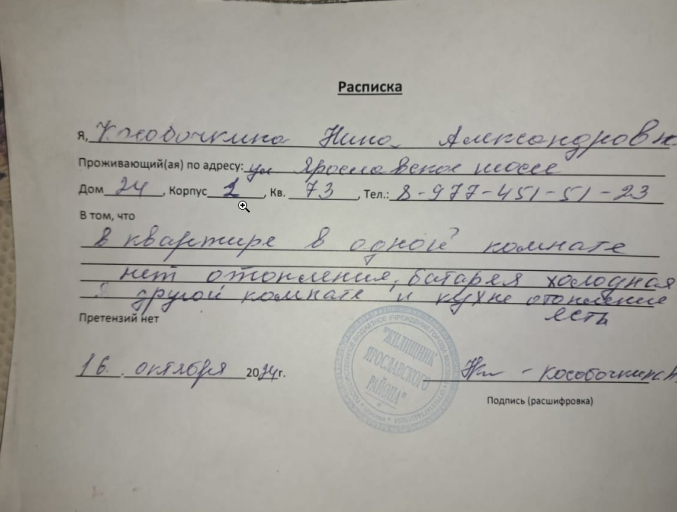 Расписка
Я, Кособочкина Нина Александровн
Проживающий(ая) по адресу: ул Ярославское шоссе
Дом 24, Корпус 1, Кв. 73, Тел.: 8-977-451-51-23
В том, что
в квартире в одной комнате
нет отопления, батарея холодная
в другой комнате и кухне отопление
есть
Претензий нет
16 октября 2024г.
Кособочкина Н
Подпись (расшифровка)
"ЖИЛИЩНИК
ЯРОСЛАВСКОГО
РАЙОНА"